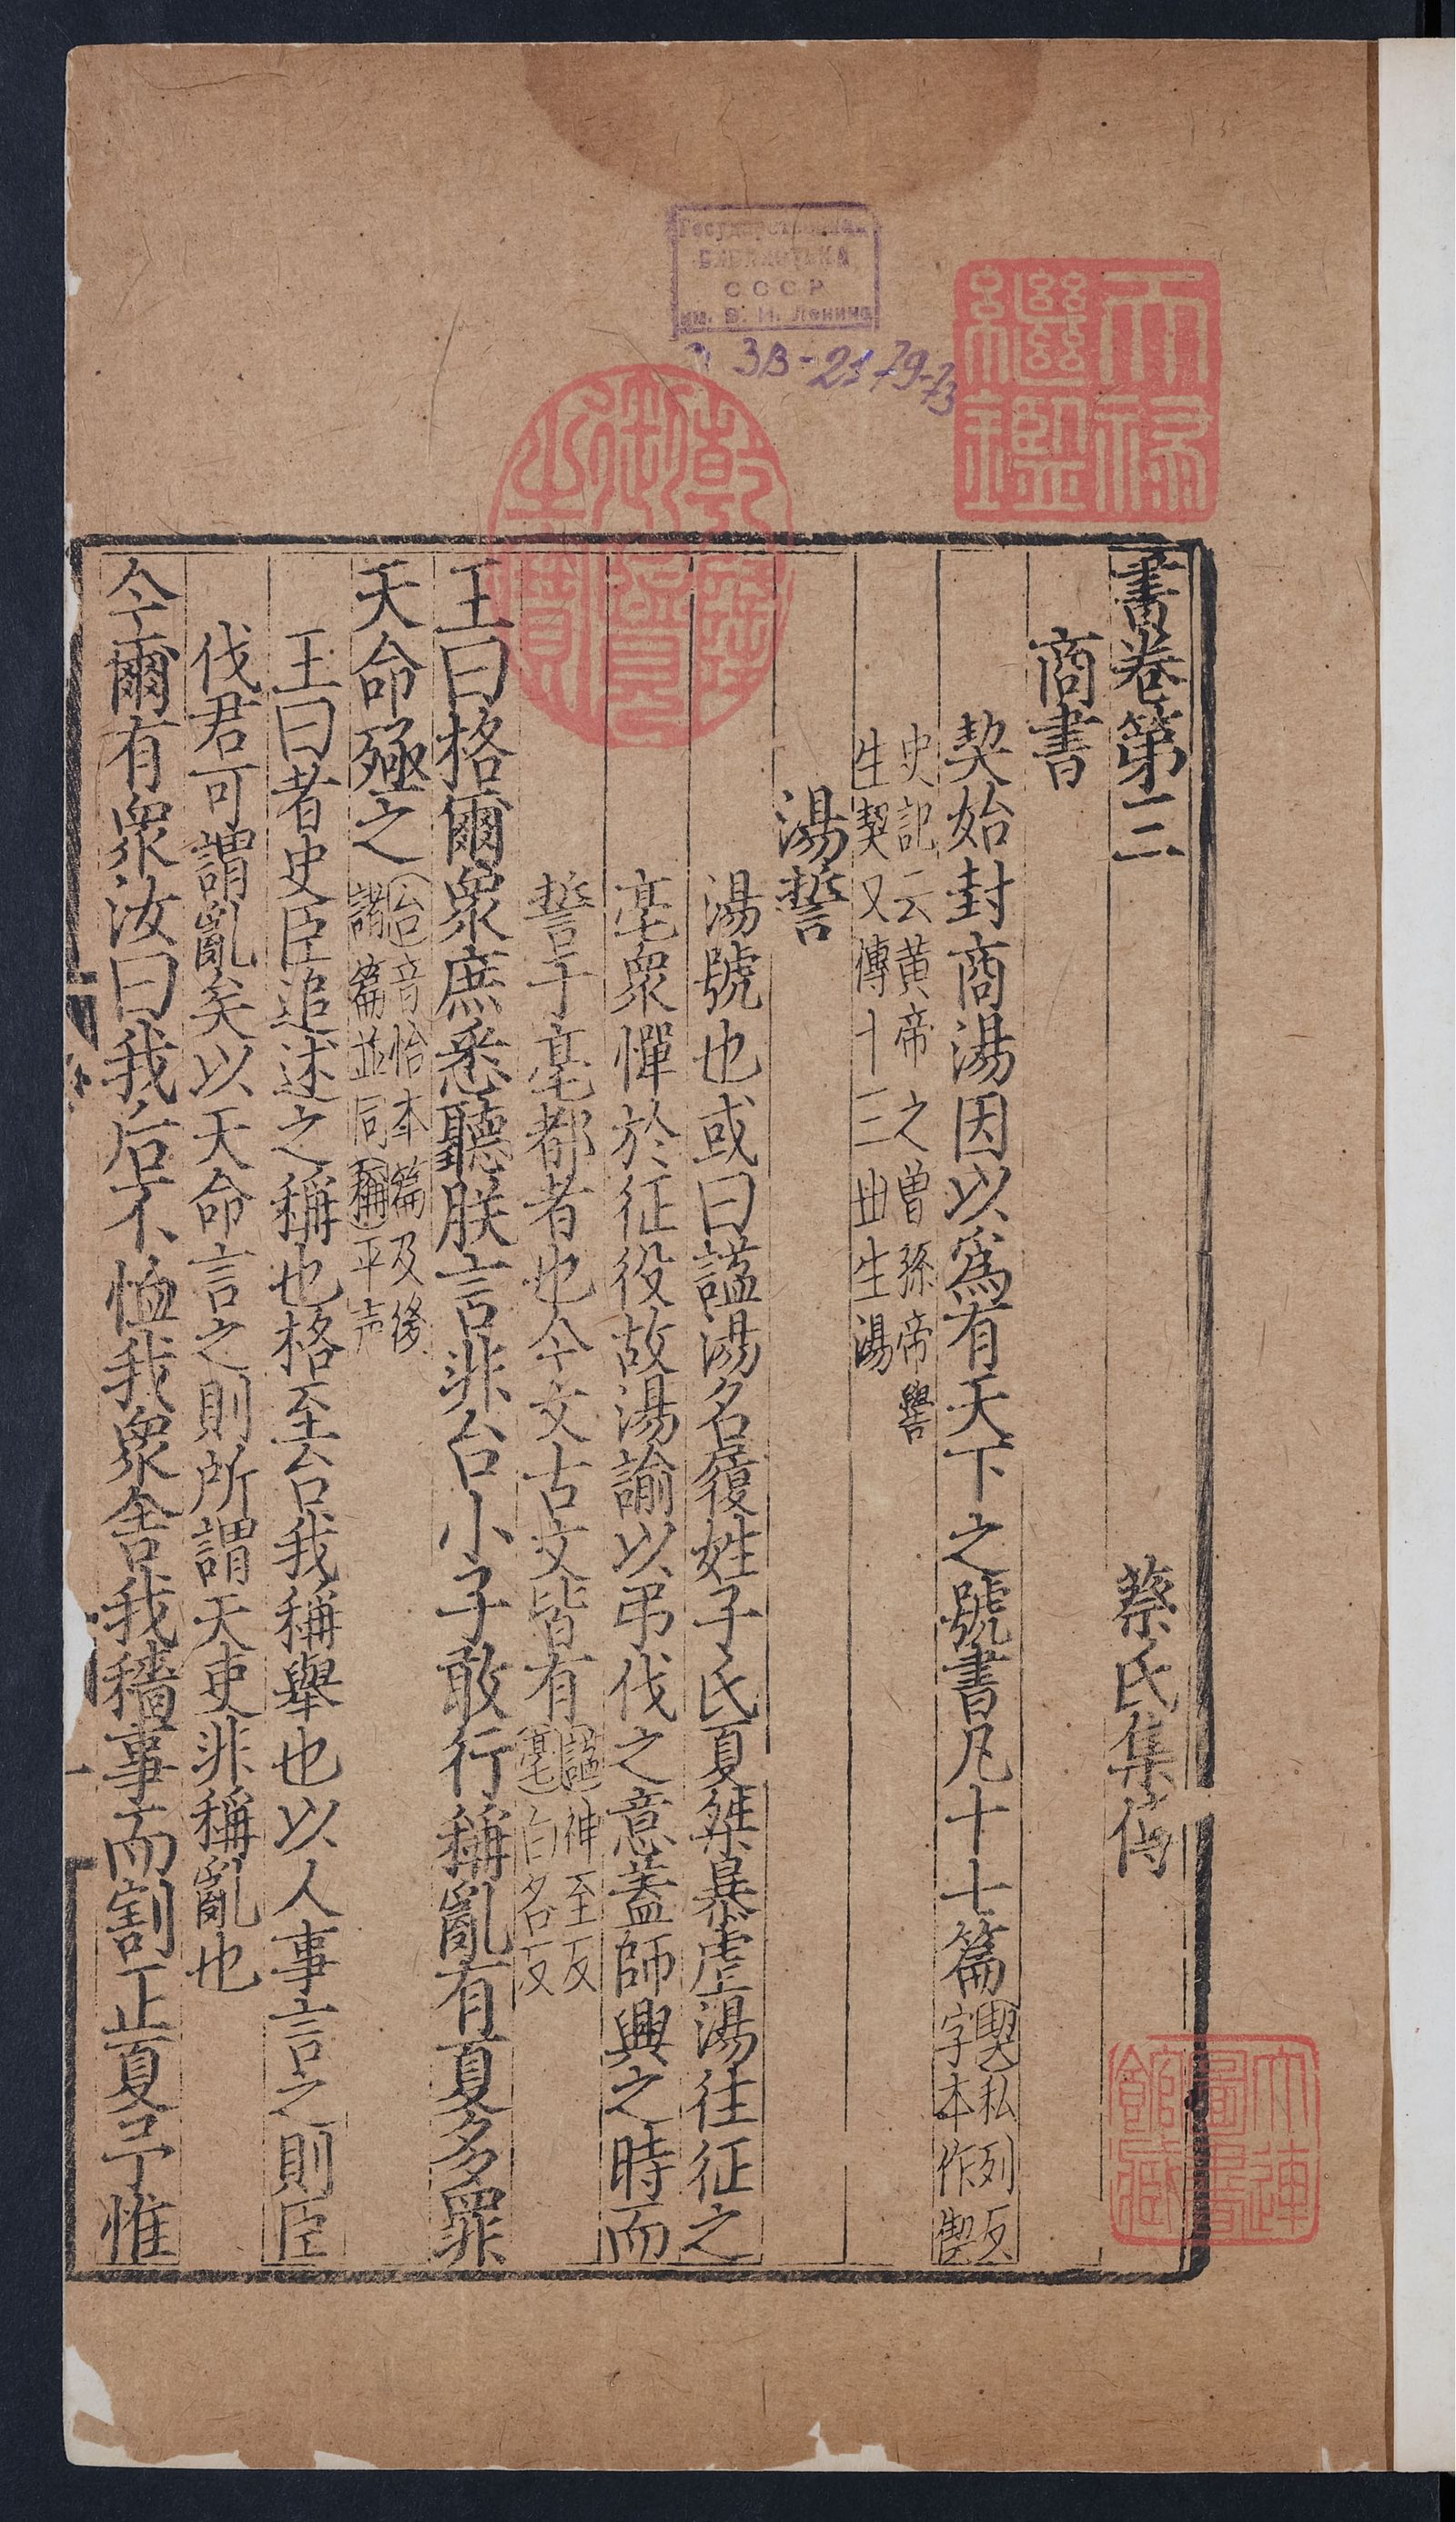 書卷第三 蔡氏集傳
商書
契始封商湯因以爲有天下之號書凡十七篇契私列反
字本作偰
史記云黄帝之曾孫帝嚳
生契又傳十三世生湯
湯誓
湯號也或曰諡湯名履姓子氏夏桀暴虐湯往征之
亳衆憚於征役故湯諭以弔伐之意蓋師興之時而
誓于亳都者也今文古文皆有諡神至反
亳白名反
王曰格爾衆庶悉聽朕言非台小子敢行稱亂有夏多罪
天命殛之台音怡本篇及後
諸篇並同稱平声
王曰者史臣追述之稱也格至台我稱舉也以人事言之則臣
伐君可謂亂矣以天命言之則所謂天吏非稱亂也
今爾有衆汝曰我后不恤我衆舍我穡事而割正夏予惟
Государственная
БИБЛИОТЕКА
СССР
им. В. И. Ленина
ЗВ-2179-73
天祿
繼鑑
乾隆
御覽
之寶
大連
圖書
館藏